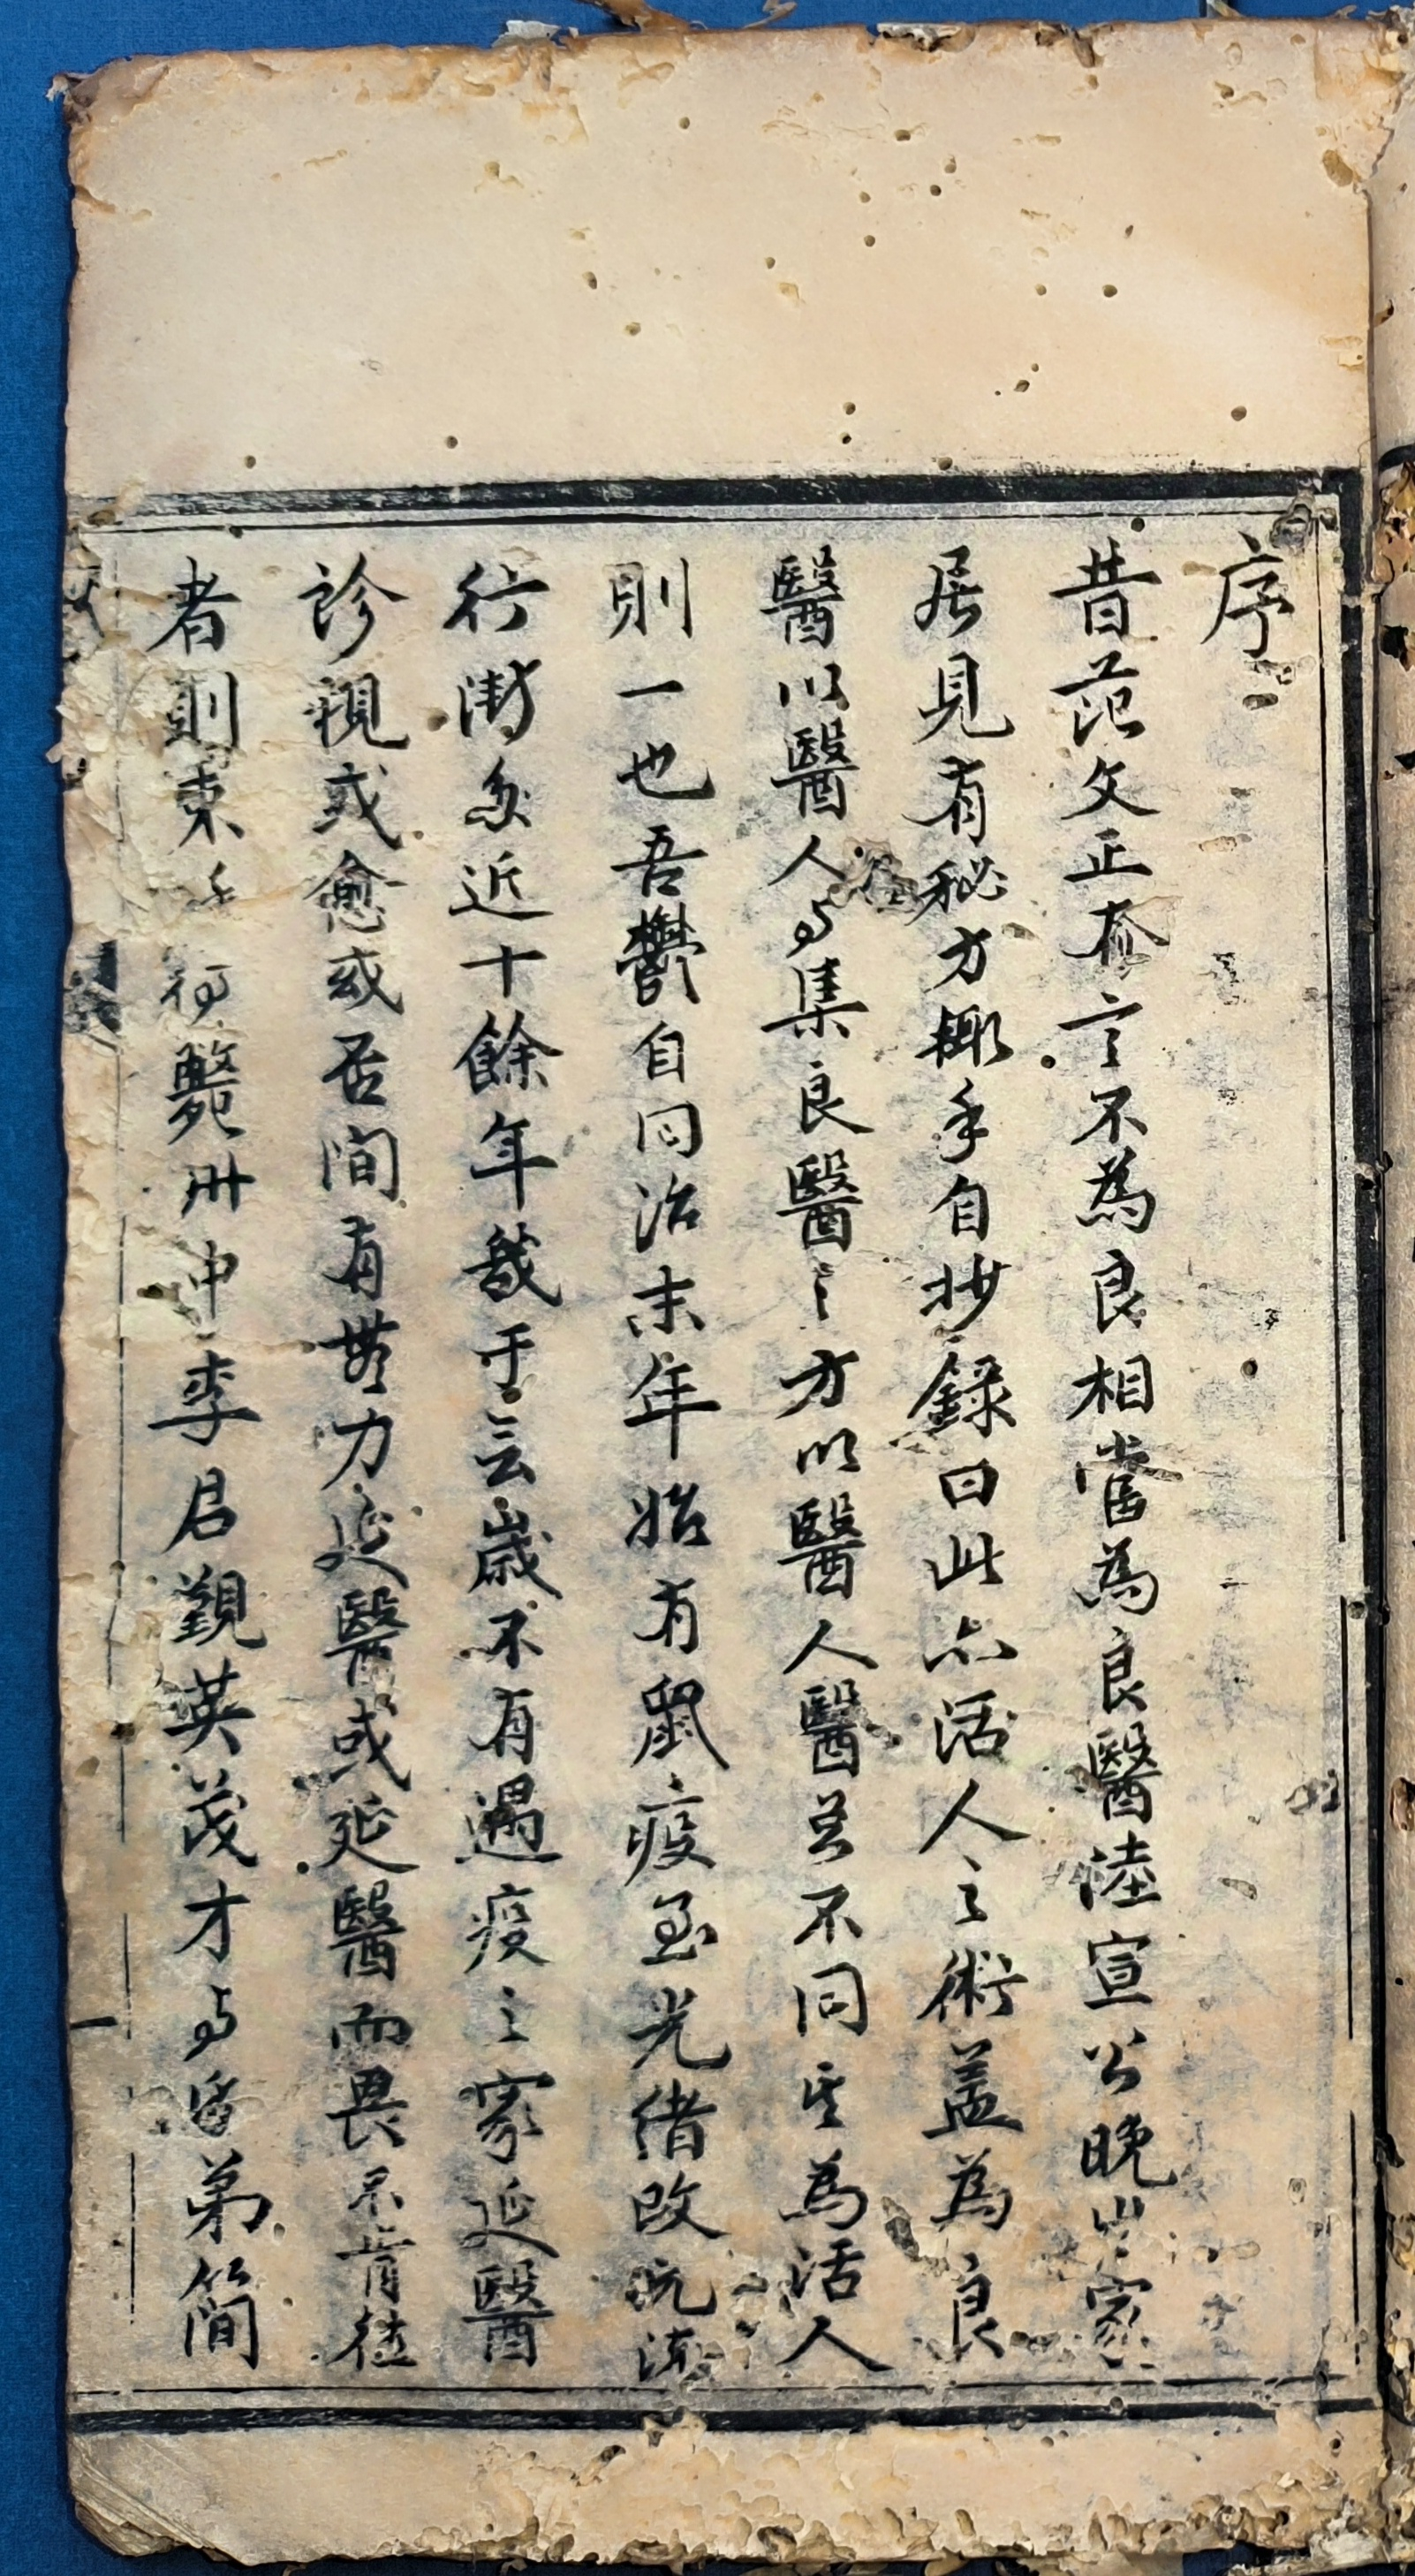 序
昔范文正有言不為良相當為良醫陸宣公晚年家
居見有秘方輒手自抄錄曰此亦活人之術蓋為良
醫以醫人與集良醫之方以醫人醫若不同其為活人
則一也吾鬱自同治末年始有鼠疫至光緒改元流
行漸多近十餘年幾于無歲不有遇疫之家延醫
診視或愈或否間有無力延醫或延醫而畏不肯往
者則束手待斃卅中李君觀英茂才與胞弟簡